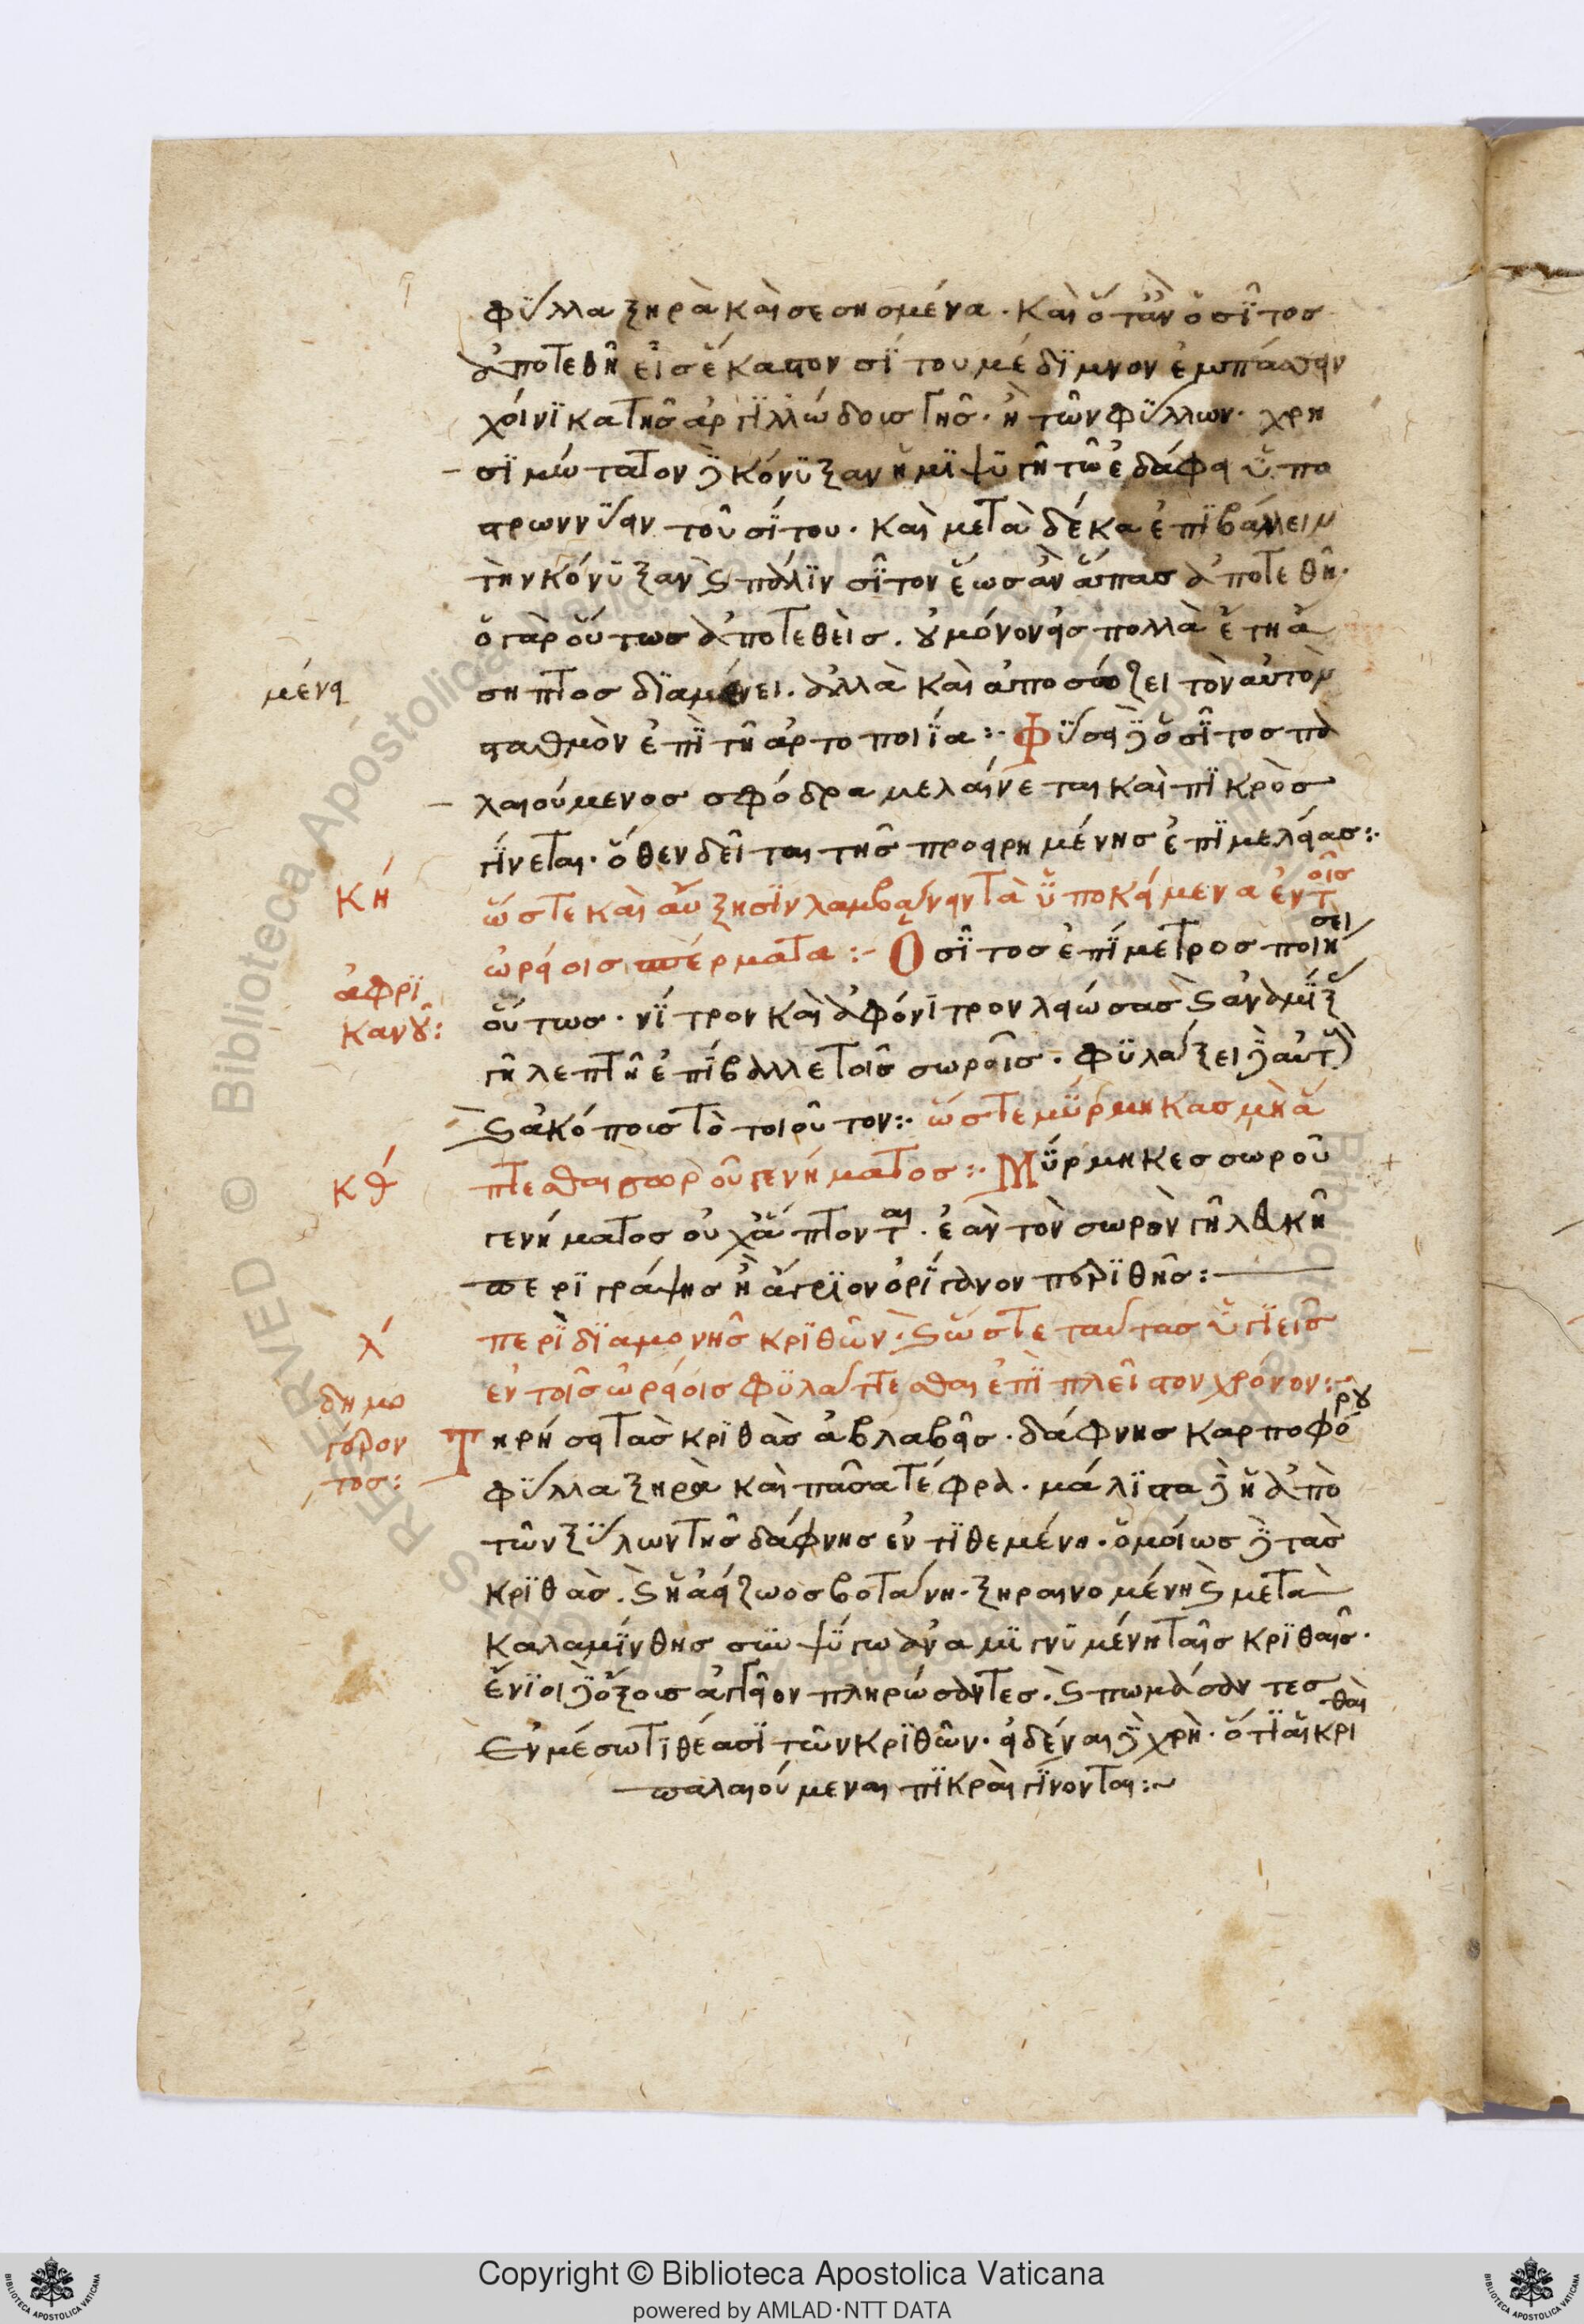 φύλλα ξηρὰ καὶ σεσησμένα. καὶ ὅταν ὁ σῖτος
ἀποτεθῆ εἰς ἕκαστον σίτου μέδιμνον ἐμπάσσειν
χοίνικα τῆς ἀργιλλώδους γῆς. ἢ τῶν φύλλων. χρη
σιμώτατον δὲ κόνυξαν ἡμίψυγῆ τῶ ἐδάφει ὑπο
στρωννύειν τοῦ σίτου. καὶ μετὰ δέκα ἐπιβάλλειν
τὴν κόνυξαν καὶ πάλιν σῖτον ἕως ἂν ἅπας ἀποτεθῆ.
ὁ γὰρ οὕτως ἀποτεθεὶς. οὐ μόνον εἰς πολλὰ ἔτη ἄ
μένει
σηπτος διαμένει. ἀλλὰ καὶ ἀποσώζει τὸν αὐτὸν
σταθμὸν ἐπὶ τῆ ἀρτοποιία:- Φύσει δὲ ὁ σῖτος πα
λαιούμενος σφόδρα μελαίνεται καὶ πικρὸς
γίνεται. ὅθεν δεῖται τῆς προειρημένης ἐπιμελείας:.
κή
ὥστε καὶ αὔξησιν λαμβάνειν τὰ ὑποκείμενα ἐν τοῖς
ὡρείοις σπέρματα:- Ὁ σῖτος ἐπίμετρος ποιήσει
ἀφρι
κανοῦ:
οὕτως. νίτρον καὶ ἀφόνιτρον λειώσας καὶ ἀναμίξ
γῆ λεπτῆ ἐπίβαλλε τοῖς σωροῖς. φυλάξει δὲ αὐτὸ
καὶ ἄκοπους τὸ τοιοῦτον:. ὥστε μύρμηκας μὴ ἅ
κθ́
πτεσθαι σωροῦ γενήματος:. Μύρμηκες σωροῦ
γενήματος οὐχ ἅπτονται. ἐὰν τὸν σωρὸν γῆ λευκῆ
περιγράψης ἢ ἄγριον ὀρίγανον περιθῆς:
λ́
περὶ διαμονῆς κριθῶν. καὶ ὥστε ταύτας ὑγιεῖς
ἐν τοῖς ὡρείοις φυλάττεσθαι ἐπὶ πλεῖστον χρόνον:-
δημο
γέρον
τος:
Τηρήσει τὰς κριθὰς ἀβλαβεῖς. δάφνης καρποφόρου
φύλλα ξηρὰ καὶ πᾶσα τέφρα. μάλιστα δὲ ἡ ἀπὸ
τῶν ξύλων τῆς δάφνης ἐντιθεμένη. ὁμοίως δὲ τὰς
κριθὰς. καὶ ἡ ἀείζωος βοτάνη. ξηραινομένη καὶ μετὰ
καλαμίνθης σὺν γύψω ἀναμιγνυμένη ταῖς κριθαῖς.
ἔνιοι δὲ ὄξους ἀγγεῖον πληρώσαντες. καὶ πωμάσαντες
ἐν μέσω τιθέασι τῶν κριθῶν. εἰδέναι δὲ χρὴ. ὅτι αἱ κριθαὶ
παλαιούμεναι πικραὶ γίνονται:~
Copyright © Biblioteca Apostolica Vaticana
powered by AMLAD·NTT DATA